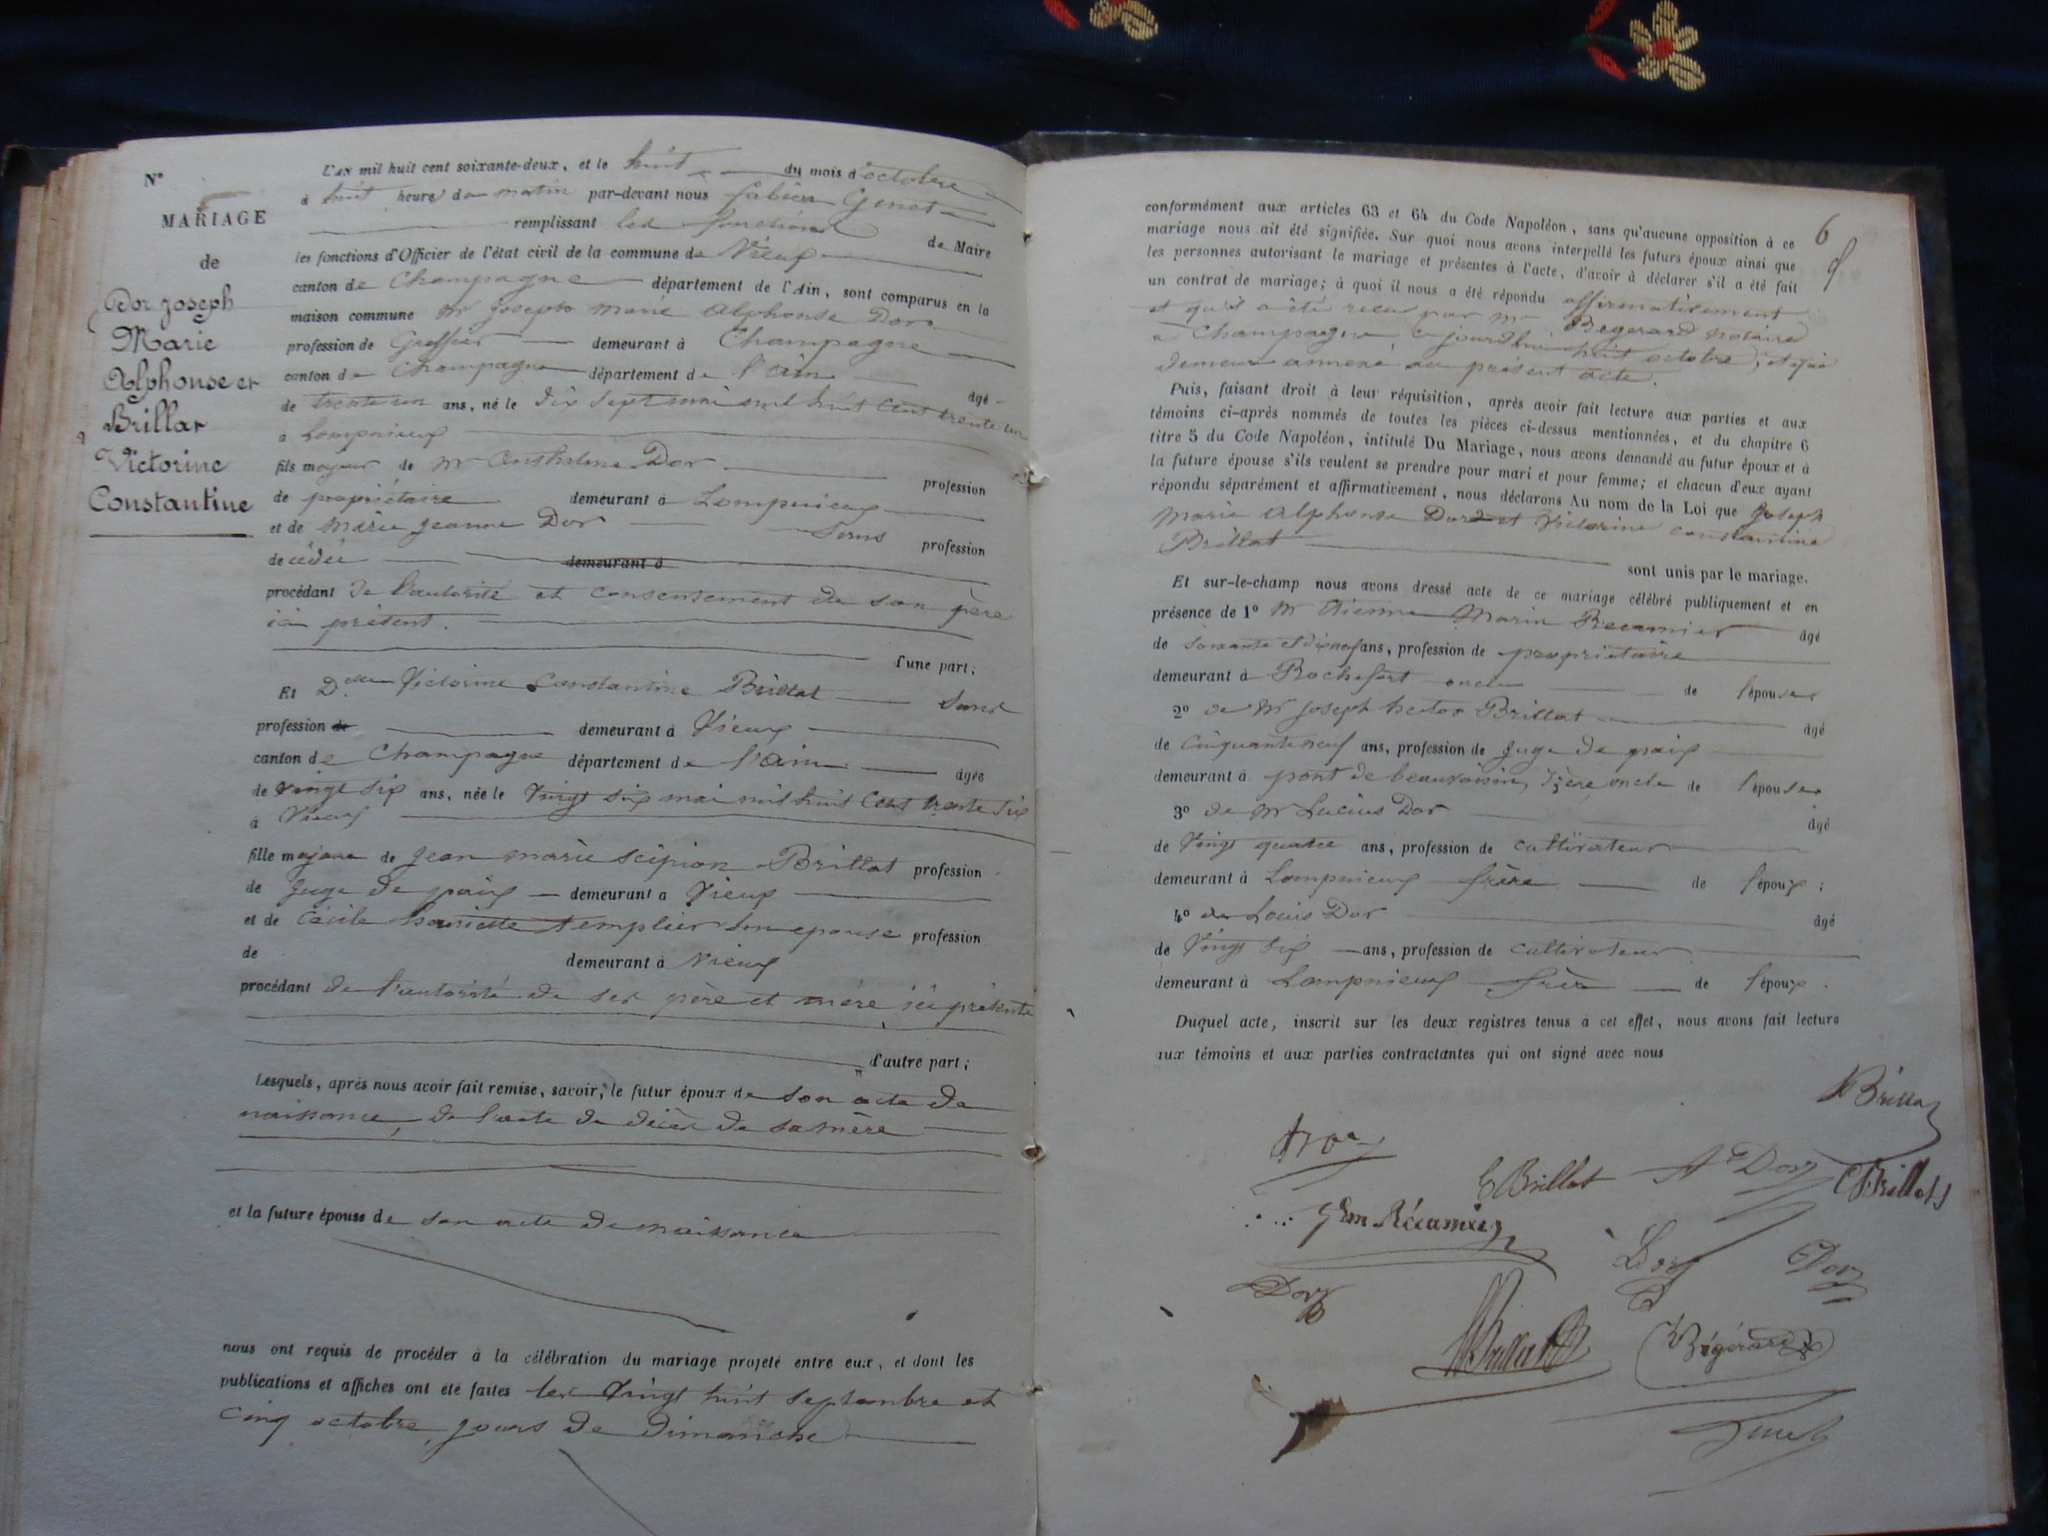 N°
MARIAGE
de
Dor Joseph
Marie
Alphonse et
Brillat
Victorine
Constantine
L'AN mil huit cent soixante-deux, et le huit du mois d'octobre
à huit heure du matin par-devant nous fabien Genot
remplissant les fonctions de Maire
les fonctions d'Officier de l'état civil de la commune de Vieux
canton de Champagne département de l'Ain, sont comparus en la
maison commune Mr Joseph Marie Alphonse Dor
profession de Greffier demeurant à Champagne
canton de Champagne département de l'ain âgé
de trente un ans, né le dix sept mai mil huit cent trente un
à Lompnieux
fils majeur de Mr Anthelme Dor profession
de propriétaire demeurant à Lompnieux
et de Marie Jeanne Dor Sans profession
décédée demeurant à
procédant de l'autorité et consentement de son père
ici présent.
d'une part;
Et Dlle Victorine Constantine Brillat Sans
profession de demeurant à Vieux
canton de Champagne département de l'ain âgée
de vingt six ans, née le vingt six mai mil huit cent trente six
à Vieux
fille majeure de Jean Marie Scipion Brillat profession
de Juge de paix demeurant à Vieux
et de Cécile henriette templier son épouse profession
de demeurant à Vieux
procédant de l'autorité de ses père et mère ici présents
d'autre part;
Lesquels, après nous avoir fait remise, savoir, le futur époux de son acte de
naissance, de l'acte de décès de sa mère
et la future épouse de son acte de naissance
nous ont requis de procéder à la célébration du mariage projeté entre eux, et dont les
publications et affiches ont été faites les vingt huit septembre et
cinq octobre jours de dimanche
6
conformément aux articles 63 et 64 du Code Napoléon, sans qu'aucune opposition à ce
mariage nous ait été signifiée. Sur quoi nous avons interpellé les futurs époux ainsi que
les personnes autorisant le mariage et présentes à l'acte, d'avoir à déclarer s'il a été fait
un contrat de mariage; à quoi il nous a été répondu affirmativement
et qu'il a été reçu par Mr Bégérard notaire
à Champagne, ce jourd'hui huit octobre,
demeure annexé au présent acte.
Puis, faisant droit à leur réquisition, après avoir fait lecture aux parties et aux
témoins ci-après nommés de toutes les pièces ci-dessus mentionnées, et du chapitre 6
titre 5 du Code Napoléon, intitulé Du Mariage, nous avons demandé au futur époux et à
la future épouse s'ils veulent se prendre pour mari et pour femme; et chacun d'eux ayant
répondu séparément et affirmativement, nous déclarons Au nom de la Loi que Joseph
Marie Alphonse Dor et Victorine Constantine
Brillat sont unis par le mariage.
Et sur-le-champ nous avons dressé acte de ce mariage célébré publiquement et en
présence de 1° Mr Etienne Marin Recamier âgé
de soixante et dix neuf ans, profession de propriétaire
demeurant à Rochefort oncle de l'épouse
2° de Mr Joseph hector Brillat âgé
de cinquante neuf ans, profession de Juge de paix
demeurant à pont de beauvoisin, Isère, oncle de l'épouse
3° de Mr Lucius Dor âgé
de vingt quatre ans, profession de cultivateur
demeurant à Lompnieux frère de l'époux;
4° de Louis Dor âgé
de vingt six ans, profession de cultivateur
demeurant à Lompnieux frère de l'époux.
Duquel acte, inscrit sur les deux registres tenus à cet effet, nous avons fait lecture
aux témoins et aux parties contractantes qui ont signé avec nous
Brillat
Dor
Brillat
Dor
Brillat
Récamier
Dor
Dor
Dor
Brillat
Bégérard
Genot